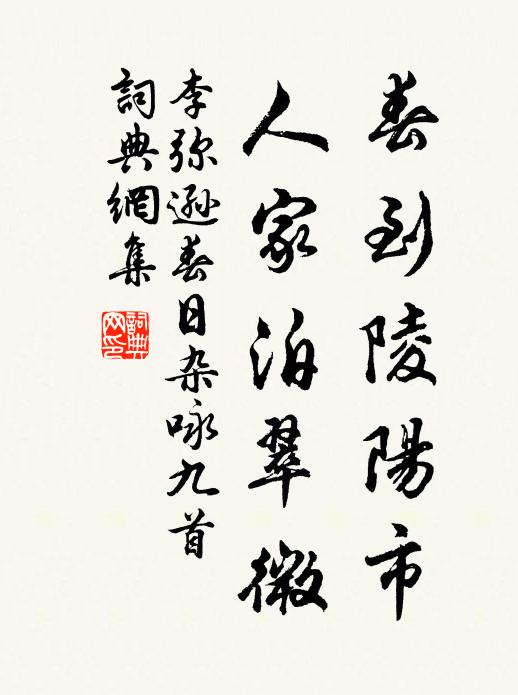 春到陵陽市
人家泊翠微
李弥遜春日杂咏九首
詞典網集
詞典網印